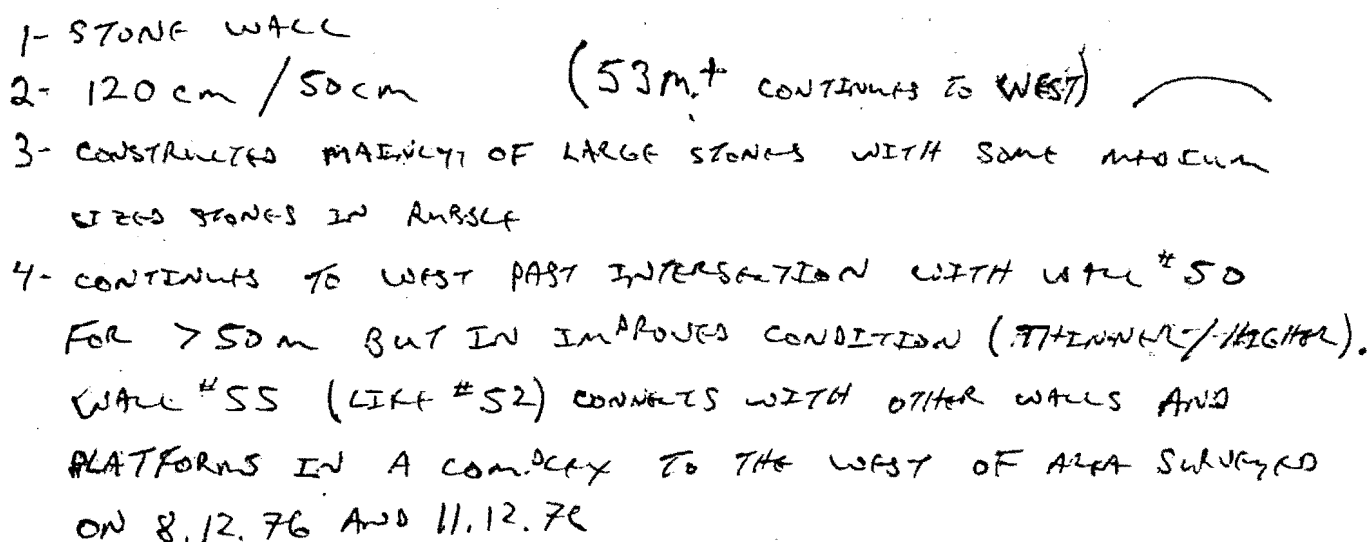 1- STONE WALL
2- 120 cm / 50 cm (53 m.+ CONTINUES TO WEST)
3- CONSTRUCTED MAINLY, OF LARGE STONES WITH SOME MEDIUM
SIZED STONES IN RUBBLE
4- CONTINUES TO WEST PAST INTERSECTION WITH WALL #50
FOR >50 m BUT IN IMPROVED CONDITION (THINNER/HIGHER).
WALL #55 (LIKE #52) CONNECTS WITH OTHER WALLS AND
PLATFORMS IN A COMPLEX TO THE WEST OF AREA SURVEYED
ON 8.12.76 AND 11.12.76